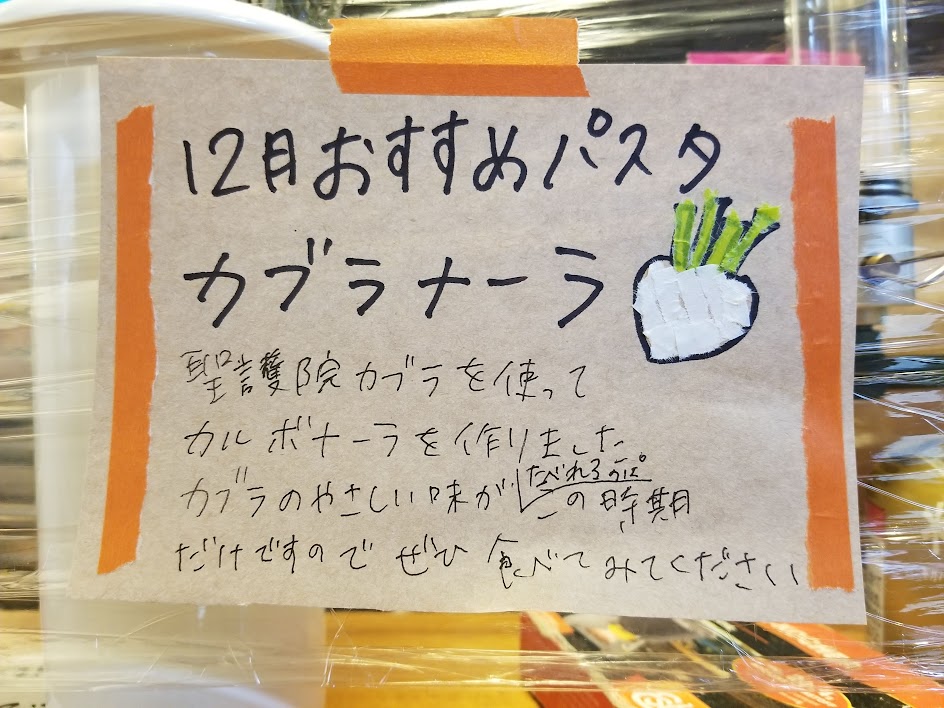 12月おすすめパスタ
カブラナーラ
聖護院カブラを使って
カルボナーラを作りました
カブラのやさしい味が
たべれるのは
この時期
だけですので ぜひ 食べてみてください